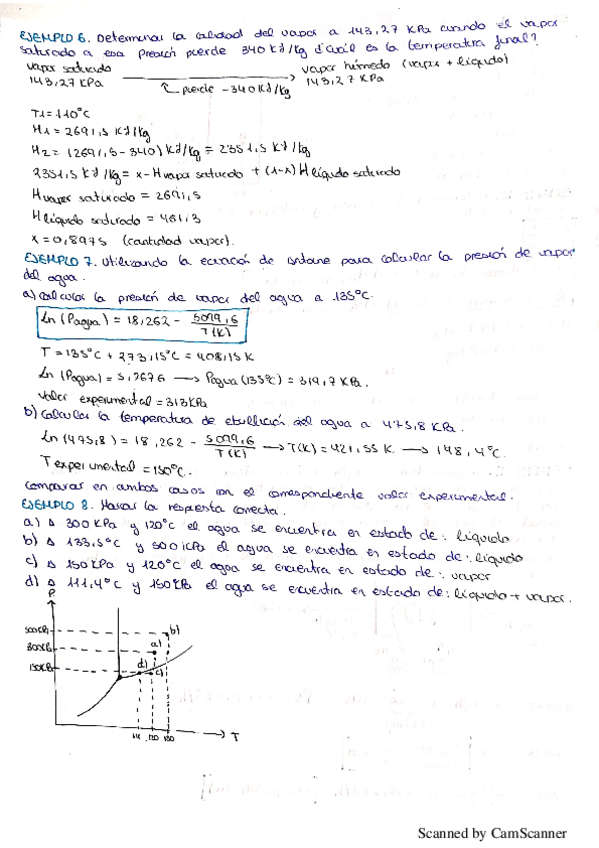 EJEMPLO 6. Determinar la calidad del vapor a 143,27 KPa cuando el vapor
saturado a esa presión pierde 340 KJ/kg ¿Cuál es la temperatura final?
vapor saturado
143,27 KPa
pierde -340 KJ/kg
vapor húmedo (vapor + líquido)
143,27 KPa
T1 = 110°C
H1 = 2691,5 KJ/kg
H2 = (2691,5-340) KJ/kg = 2351,5 KJ/kg
2351,5 KJ/kg = x - H vapor saturado + (1-x) H líquido saturado
H vapor saturado = 2691,5
H líquido saturado = 461,3
x = 0,8975 (cantidad vapor).
EJEMPLO 7. Utilizando la ecuación de Antoine para calcular la presión de vapor
del agua.
a) Calcular la presión de vapor del agua a 135°C.
Ln (Pagua) = 18,262 - 5099,6 / T(K)
T = 135°C + 273,15°C = 408,15 K
Ln (Pagua) = 5,7676 → Pagua (135°C) = 319,7 KPa.
Valor experimental = 313 KPa
b) Calcular la temperatura de ebullición del agua a 475,8 KPa.
Ln (475,8) = 18,262 - 5099,6 / T(K) → T(K) = 421,55 K → 148,4°C.
T experimental = 150°C.
Comparar en ambos casos con el correspondiente valor experimental.
EJEMPLO 8. Marcar la respuesta correcta.
a) A 300 KPa y 120°C el agua se encuentra en estado de: líquido
b) A 133,5°C y 500 KPa el agua se encuentra en estado de: líquido
c) A 150 KPa y 120°C el agua se encuentra en estado de: vapor
d) A 111,4°C y 150 KPa el agua se encuentra en estado de: líquido + vapor.
P
500KPa
b)
300KPa
a)
150KPa
d)
c)
111 120 130
T
Scanned by CamScanner